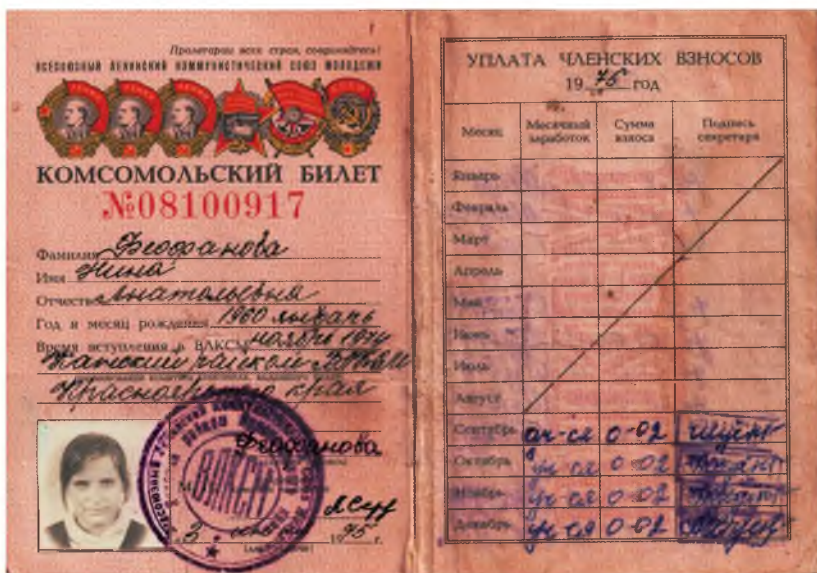 Пролетарии всех стран, соединяйтесь!
ВСЕСОЮЗНЫЙ ЛЕНИНСКИЙ КОММУНИСТИЧЕСКИЙ СОЮЗ МОЛОДЕЖИ
КОМСОМОЛЬСКИЙ БИЛЕТ
№08100917
Фамилия Феофанова
Имя Нина
Отчество Анатольевна
Год и месяц рождения 1960 январь
Время вступления в ВЛКСМ ноябрь 1974
Канский райком ВЛКСМ
Красноярского края
Феофанова
ВЛКСМ
3 1975 г.
УПЛАТА ЧЛЕНСКИХ ВЗНОСОВ
1975 год
Месяц Месячный заработок Сумма взноса Подпись секретаря
Январь
Февраль
Март
Апрель
Май
Июнь
Июль
Август
Сентябрь уч-ся 0-02
Октябрь уч-ся 0-02
Ноябрь уч-ся 0-02
Декабрь уч-ся 0-02